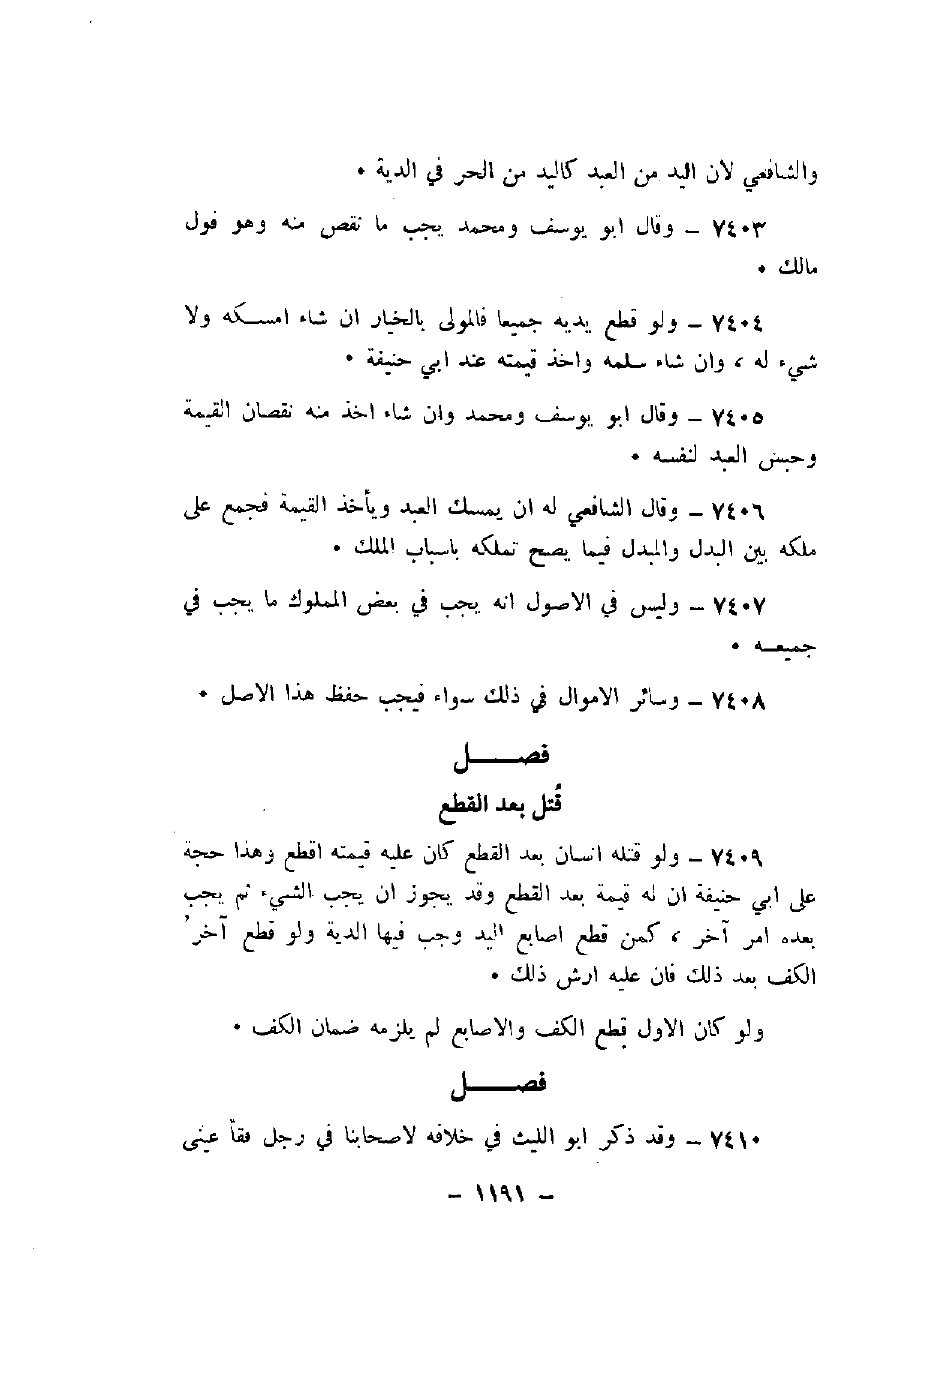 والشافعي لان اليد من العبد كاليد من الحر في الدية ٠
٧٤٠٣ – وقال ابو يوسف ومحمد يجب ما نقص منه وهو قول
مالك ٠
٧٤٠٤ – ولو قطع يديه جميعا فالمولى بالخيار ان شاء امسكه ولا
شيء له ، وان شاء سلمه واخذ قيمته عند ابي حنيفة ٠
٧٤٠٥ – وقال ابو يوسف ومحمد وان شاء اخذ منه نقصان القيمة
وحبس العبد لنفسه ٠
٧٤٠٦ – وقال الشافعي له ان يمسك العبد ويأخذ القيمة فجمع على
ملكه بين البدل والمبدل فيما يصح تملكه باسباب الملك ٠
٧٤٠٧ – وليس في الاصول انه يجب في بعض المملوك ما يجب في
جميعه ٠
٧٤٠٨ – وسائر الاموال في ذلك سواء فيجب حفظ هذا الاصل ٠
فصل
قُتل بعد القطع
٧٤٠٩ – ولو قتله انسان بعد القطع كان عليه قيمته اقطع وهذا حجة
على ابي حنيفة ان له قيمة بعد القطع وقد يجوز ان يجب الشيء ثم يجب
بعده امر آخر ، كمن قطع اصابع اليد وجب فيها الدية ولو قطع آخرُ
الكف بعد ذلك فان عليه ارش ذلك ٠
ولو كان الاول قطع الكف والاصابع لم يلزمه ضمان الكف ٠
فصل
٧٤١٠ – وقد ذكر ابو الليث في خلافه لاصحابنا في رجل فقأ عيني
– ١١٩١ –